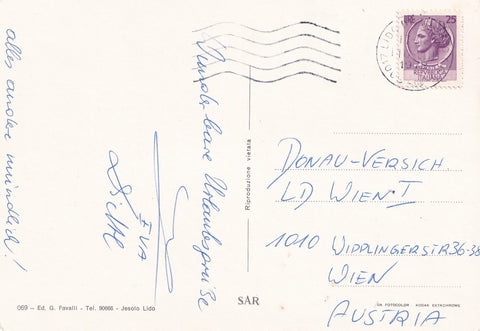 Wunderbare Urlaubspreise
alles andere mündlich!
EVA
LIRE 25
30017 LIDO
DONAU-VERSICH
LD WIEN I
1010 WIPPLINGERSTR 36-38
WIEN
AUSTRIA
Riproduzione vietata
SAR
069 - Ed. G. Favalli - Tel. 90666 - Jesolo Lido
DA FOTOCOLOR KODAK EKTACHROME